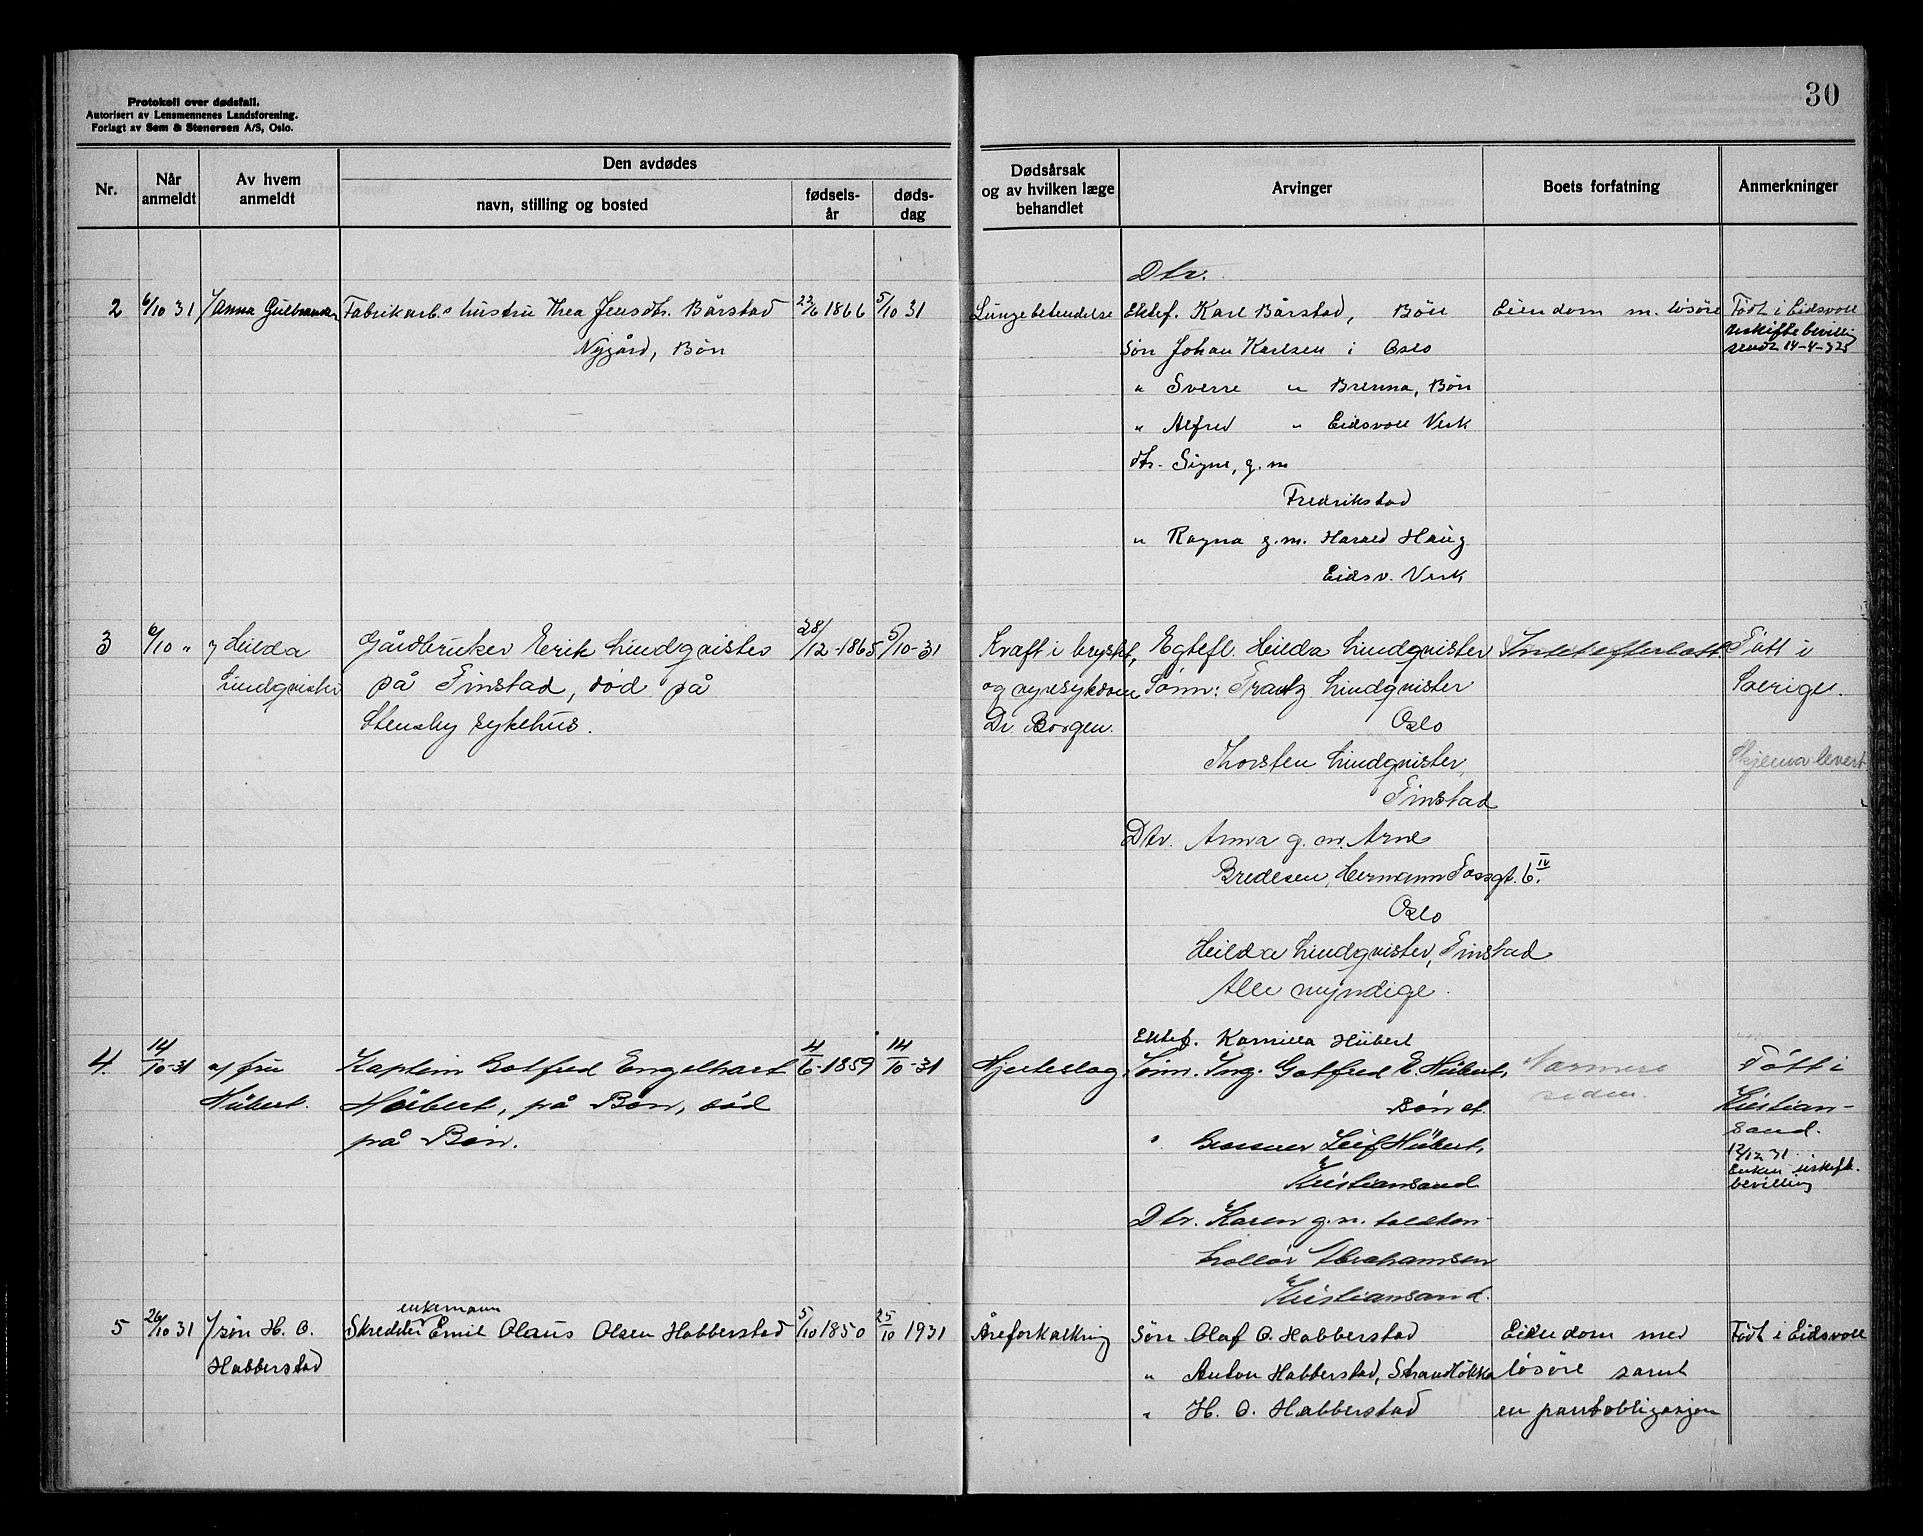 Protokoll over dødsfall.
Autorisert av Lensmennenes Landsforening.
Forlagt av Sem & Stenersen A/S, Oslo.
30
Nr.
Når anmeldt
Av hvem anmeldt
Den avdødes
navn, stilling og bosted
fødsels-år
døds-dag
Dødsårsak og av hvilken læge behandlet
Arvinger
Boets forfatning
Anmerkninger
2 6/10 31 Anna Gulbrandsen Fabrikarb.s hustru Thea Jensdtr. Bårstad 22/6 1866 5/10 31
Nygård, Bön
Lungebetendelse
Dtr.
Ektef. Karl Bårstad, Bön
Sön Johan Karlsen i Oslo
" Sverre " Brenna, Bön
" Alfred " Eidsvoll Verk
dtr. Signe, g.m
Fredrikstad
" Ragna g.m. Harald Haug
Eidsv. Verk
Eiendom m. lösöre
Födt i Eidsvoll
uskiftebevilli
sendt 14-4-32
3 6/10 " Hilda
Lindqvister
Gårdbruker Erik Lindqvister
på Finstad, död på
Stensby sykehus.
28/12-1865 5/10-31
Kraft i brystet,
og nyresykdom
Dr. Borgen.
Egtefl. Hilda Lindqvister
Sönn: Frantz Lindqvister
Oslo
Thorsten Lindqvister,
Finstad
Dtr. Anna g.m. Arne
Bredesen, Hermann Fossgt. 6. IV
Oslo
Hilda Lindqvister, Finstad
Alle myndige.
Intet efterlatt
Födt i
Sverige.
Skjema levert
4. 14/10-31 fru
Hübert.
Kaptein Gotfred Engelhart
Hübert, på Bön, död
på Bön.
4/6-1859 14/10-31
Hjerteslag
Ektef. Kamilla Hübert
Sönn. Ing. Gotfred E. Hübert,
Bön st.
" Leif Hübert,
Kristiansand
Dtr. Karen g.m. toldkon-
trollör Abrahamsen
Kristiansand.
Nærmere
siden.
Födt i
Kristian-
sand.
12/12 31
Enken uskift.
bevilling
5 26/10 31 sön H. O.
Habberstad
enkemann
Skredder Emil Olaus Olsen Habberstad 5/10 1850 25/10 1931
Åreforkalkning
Sön Olaf O. Habberstad
" Anton Habberstad, Strandlökka
" H. O. Habberstad
Eiendom med
lösöre samt
en pantobligasjon
Födt i Eidsvoll